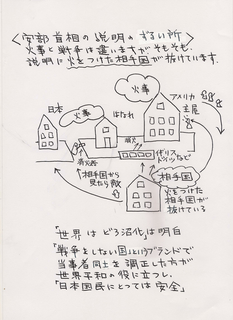 ＜安部首相の説明のずるい所＞
火事と戦争は違いますがそもそも、
説明に火をつけた相手国が抜けています.
火事
アメリカ
母屋
日本
火事
はなれ
消火
消火器
イギリス
ドイツなど
相手国から
見たら敵
相手国
火をつけた
相手国が
抜けている
「世界はどろ沼化」は明白
「戦争をしない国」というブランドで
当事者同士を調正した方が
世界平和の役に立つし、
「日本国民にとっては安全」